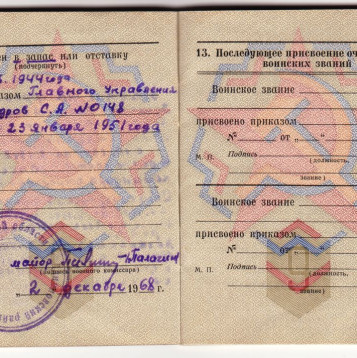 ен в запас или отставку
(подчеркнуть)
1944 года
азом Главного Управления
дров С.А. №0148
23 января 1951 года
майор
(подпись военного комиссара)
„2" декабря 1968 г.
13. Последующее присвоение оч
воинских званий
Воинское звание
присвоено приказом
№ от „ "
М. П. Подпись
(должность,
звание)
Воинское звание
присвоено приказом
№ от
М. П. Подпись
(должность,
звание)